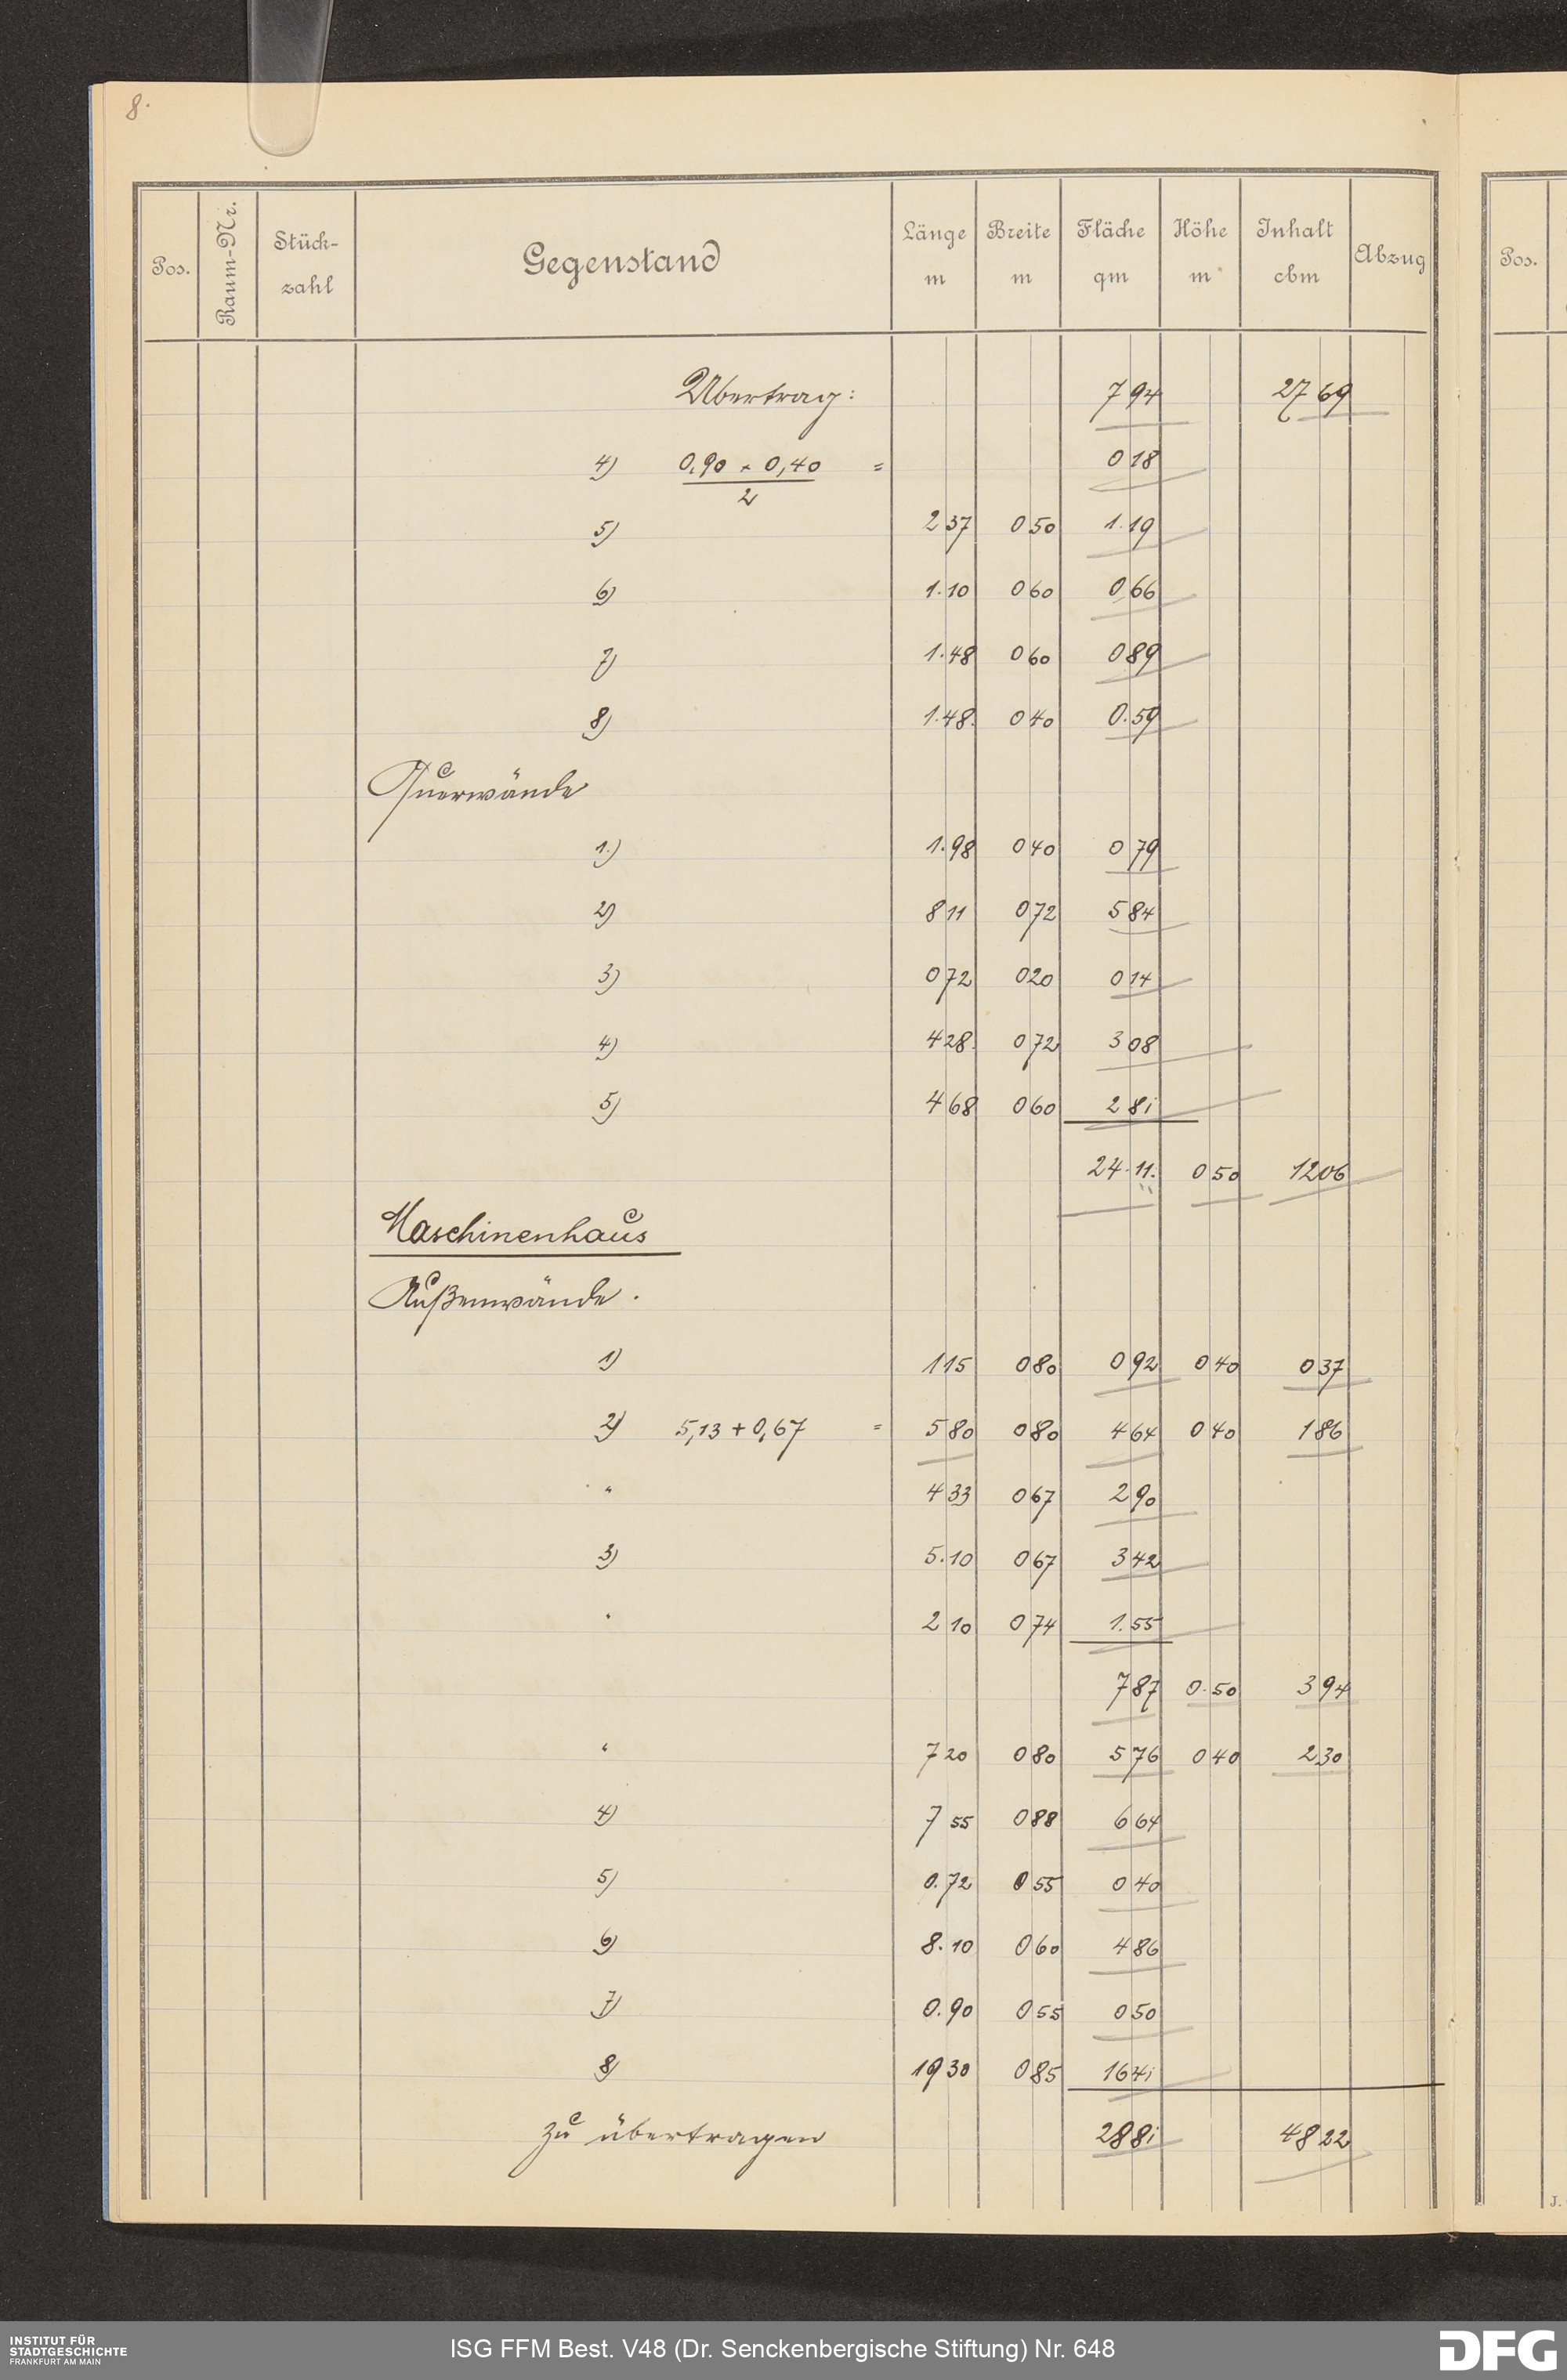 8.
Pos. Raum-Nr. Stück-zahl Gegenstand Länge m Breite m Fläche qm Höhe m Inhalt cbm Abzug Pos.
Übertrag: 7 94 27 69
4) 0,90 × 0,40 / 2 = 0 18
5) 2 37 0 50 1.19
6) 1.10 0 60 0 66
7) 1.48 0 60 0 89
8) 1.48. 0 40 0.59
Querwände
1.) 1.98 0 40 0 79
2) 8 11 0 72 5 84
3) 0 72 0 20 0 14
4) 4 28. 0 72 3 08
5) 4 68 0 60 2 81
24.11. 0 50 12 06
Maschinenhaus
Außenwände.
1) 1 15 0 80 0 92 0 40 0 37
2) 5,13 + 0,67 = 5 80 0 80 4 64 0 40 1 86
" 4 33 0 67 2 90
3) 5.10 0 67 3 42
" 2 10 0 74 1.55
7 87 0.50 3 94
" 7 20 0 80 5 76 0 40 2 30
4) 7 55 0 88 6 64
5) 0.72 0 55 0 40
6) 8.10 0 60 4 86
7) 0.90 0 55 0 50
8) 19 30 0 85 16 41
zu übertragen 28 81 48 22
J.
INSTITUT FÜR
STADTGESCHICHTE
FRANKFURT AM MAIN
ISG FFM Best. V48 (Dr. Senckenbergische Stiftung) Nr. 648
DFG